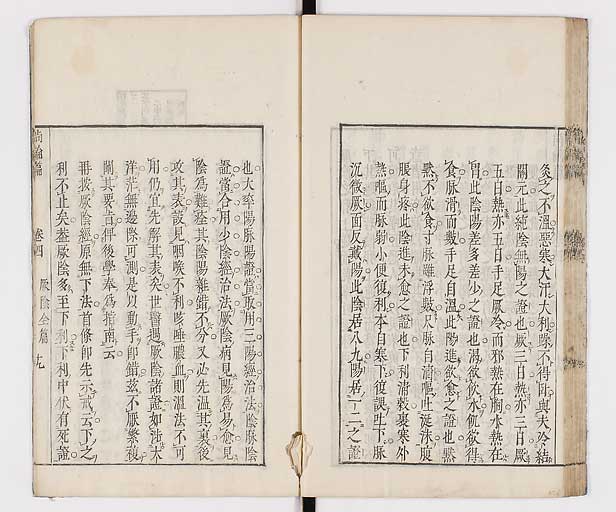 灸之不溫惡寒大汗大利躁不得臥與夫冷結
關元此純陰無陽之證也厥三日熱亦三日厥
五日熱亦五日手足厥冷而邪熱在胸水熱在
胃此陰陽差多差少之證也渴欲飲水飢欲得
食脉滑而數手足自溫此陽進欲愈之證也默
默不欲食寸脉雖浮數尺脉自濇嘔吐涎沫腹
脹身疼此陰進未愈之證也下利清穀裏寒外
熱嘔而脉弱小便復利本自寒下復誤吐下脉
沉微厥面反戴陽此陰居八九陽居一二之證
也大率陽脉陽證當取用三陽經治法陰脉陰
證當合用少陰經治法厥陰病見陽爲易愈見
陰爲難痊其陰陽雜錯不分又必先溫其裏後
攻其表設見咽喉不利咳唾膿血則溫法不可
用仍宜先解其表矣世醫遇厥陰諸證如涉大
洋茫無邊際可測是以動手即錯茲不厭繁複
闡其要旨俾後學奉爲指南云
再按厥陰經原無下法首條即先示戒云下之
利不止矣蓋厥陰多至下利下利中伏有死證
尚論篇 卷四 厥陰全篇 九